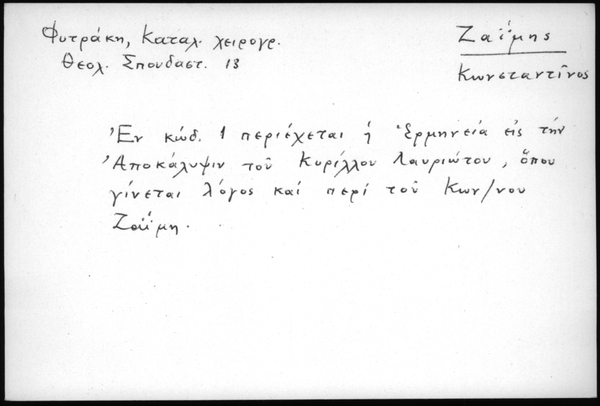 Φυτράκη, Καταλ. χειρογρ.
Θεολ. Σπουδαστ. 13
Ζαΐμης
Κωνσταντῖνος
Ἐν κώδ. 1 περιέχεται ἡ Ἑρμηνεία εἰς τὴν
Ἀποκάλυψιν τοῦ Κυρίλλου Λαυριώτου, ὅπου
γίνεται λόγος καὶ περὶ τοῦ Κων/νου
Ζαΐμη.